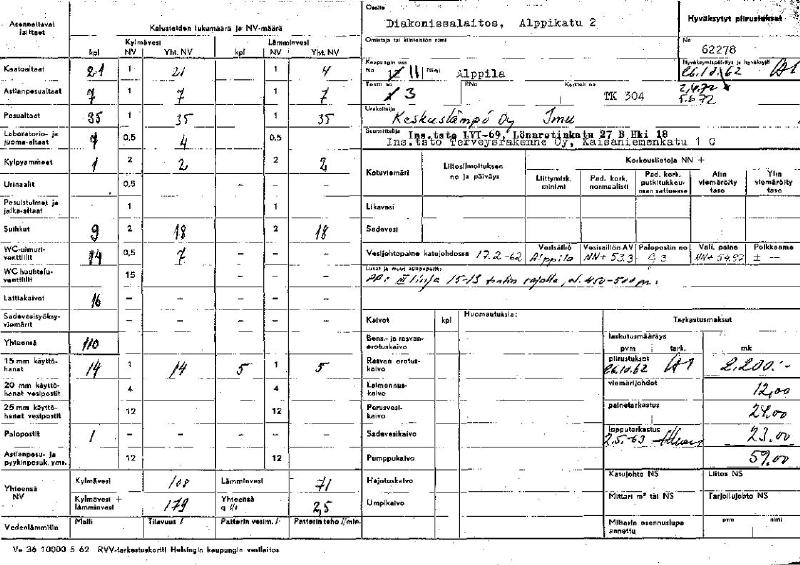 Asennettavat laitteet
Kalusteiden lukumäärä ja NV-määrä
Kylmävesi
Lämminvesi
kpl NV Yht. NV kpl NV Yht. NV
Kaatoaltaat 21 1 21 1 4
Astianpesualtaat 7 1 7 1 7
Pesualtaat 35 1 35 1 35
Laboratorio- ja juoma-altaat 7 0,5 4 0,5
Kylpyammeet 1 2 2 2 2
Urinaalit 0,5 - - -
Pesuistuimet ja jalka-altaat - 1 1
Suihkut 9 2 18 2 18
WC-uimuriventtiilit 14 0,5 7 - - -
WC huuhteluventtiilit 15 - - -
Lattiakaivot 16 - - - - -
Sadevesisyöksyviemärit - - - - -
Yhteensä 110
15 mm käyttöhanat 14 1 14 5 1 5
20 mm käyttöhanat vesipostit 4 4
25 mm käyttöhanat vesipostit 12 12
Palopostit 1 - - - - -
Astianpesu- ja pyykinpesuk. yms. 12 12
Yhteensä NV
Kylmävesi 108 Lämminvesi 71
Kylmävesi + lämminvesi 179 Yhteensä q l/s 2,5
Vedenlämmitin Malli Tilavuus l Patterin vesim. l Patterin teho l/min.
Osoite
Diakonissalaitos, Alppikatu 2
Omistaja tai kiinteistön nimi
Kaupungin osa No 11 Nimi Alppila
Tontti no 3 RNo Kortteli no TK 304
Urakoitsija
Keskuslämpö Oy Imu
Suunnittelija
Ins.tsto LVI-69, Lönnrotinkatu 27 B Hki 18
Ins.tsto Terveysrakenne Oy, Kaisaniemenkatu 1 C
Hyväksytyt piirustukset
No 62278
Hyväksymispäiväys ja hyväksyjä
26.10.62
2.4.72
5.6.72
Kotiviemäri
Liitosilmoituksen no ja päiväys
Korkeustietoja NN +
Liittymisk. minimi
Pad. kork. normaalisti
Pad. kork. putkitukkeuman sattuessa
Alin viemäröity taso
Ylin viemäröity taso
Likavesi
Sadevesi
Vesijohtopaine katujohdossa 17.2-62
Vesisäiliö Alppila
Vesisäiliön AV NN+ 53.3
Palopostin no G 3
Vall. paine NN+ 54,92
Poikkeama ± —
Kaivot kpl Huomautuksia:
Bens.- ja rasvanerotuskaivo
Rasvan erotuskaivo
Laimennuskaivo
Perusvesikaivo
Sadevesikaivo
Pumppukaivo
Hajotuskaivo
Umpikaivo
Tarkastusmaksut
laskutusmääräys
pvm tark. mk
piirustukset 26.10.62 2.200:-
viemärijohdot 12,00
painetarkastus 24.00
lopputarkastus 2.5.-63 23.00
59.00
Kasujohto NS Liitos NS
Mittari m³ tai NS Tarjoilujohto NS
Miharin asennuslupa annettu pvm nimi
Ve 36 10000 5 62 RVV-tarkastuskortti Helsingin kaupungin vesilaitos